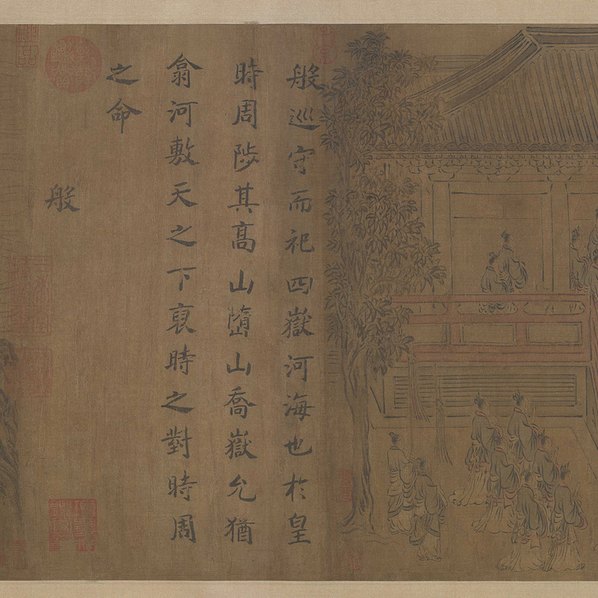 般巡守而祀四嶽河海也於皇
時周陟其高山墮山喬嶽允猶
翕河敷天之下裒時之對時周
之命
般